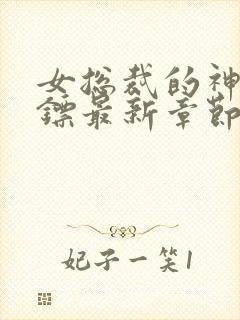 女总裁的神
镖最新章节
妃子一笑1